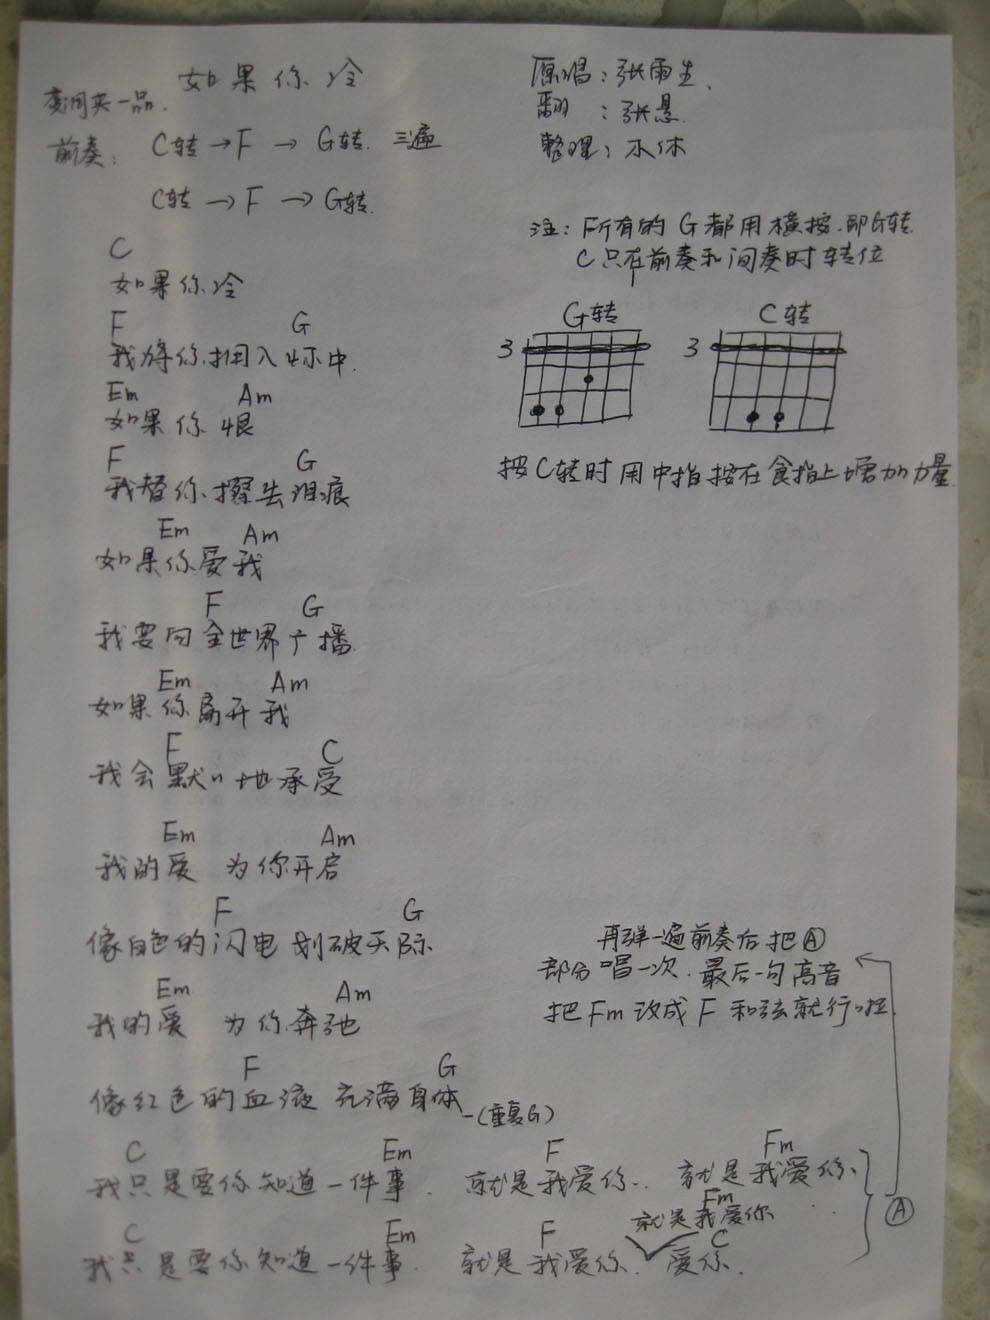 如果你冷
原唱：张雨生.
变调夹一品.
翻：张悬
前奏： C转→F → G转. 三遍
整理：木休
C转→F →G转.
注：所有的G都用横按.即G转
C只在前奏和间奏时转位
C
如果你冷
F G
我将你拥入怀中.
G转 C转
3 3
Em Am
如果你恨
F G
我替你擦去泪痕
按C转时用中指按在食指上增加力量.
Em Am
如果你爱我
F G
我要向全世界广播
Em Am
如果你离开我
F C
我会默〃地承受
Em Am
我的爱 为你开启
F G
像白色的闪电 划破天际
Em Am
我的爱 为你奔驰
再弹一遍前奏后把Ⓐ
部分唱一次.最后一句高音
把Fm改成F和弦就行啦
F G
像红色的血液 充满身体-(重复G)
C Em F Fm
我只是要你知道一件事. 就是我爱你.. 就是我爱你.
Fm
就是我爱你 ..
Ⓐ
C Em F C
我只是要你知道一件事. 就是我爱你. 爱你.